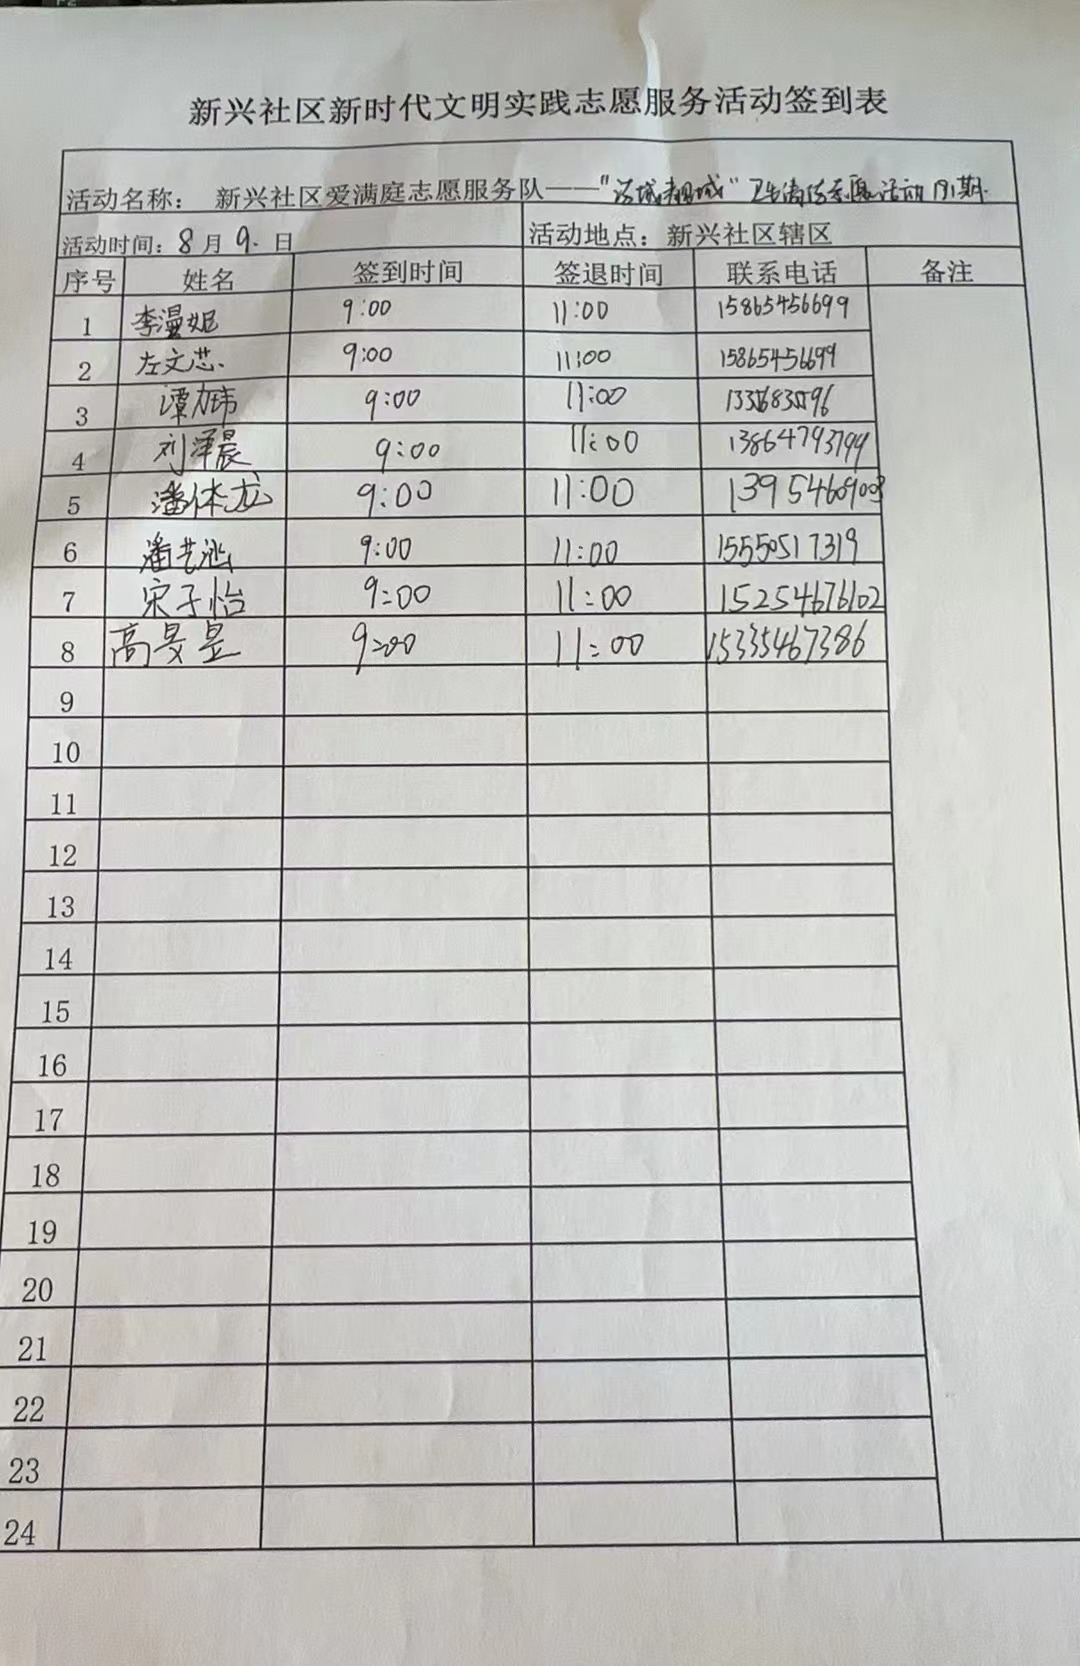 新兴社区新时代文明实践志愿服务活动签到表
活动名称： 新兴社区爱满庭志愿服务队——“ 城 城” 卫生清洁志愿活动 期
活动时间：8月9日 活动地点：新兴社区辖区
序号 姓名 签到时间 签退时间 联系电话 备注
1 李漫妮 9:00 11:00 15865456699
2 左文芯 9:00 11:00 15865456699
3 谭力玮 9:00 11:00
4 刘泽晨 9:00 11:00 13864793799
5 潘体龙 9:00 11:00 13954609003
6 潘艺涵 9:00 11:00 15550517319
7 宋子怡 9:00 11:00 15254676102
8 高旻昱 9:00 11:00 15335467386
9
10
11
12
13
14
15
16
17
18
19
20
21
22
23
24